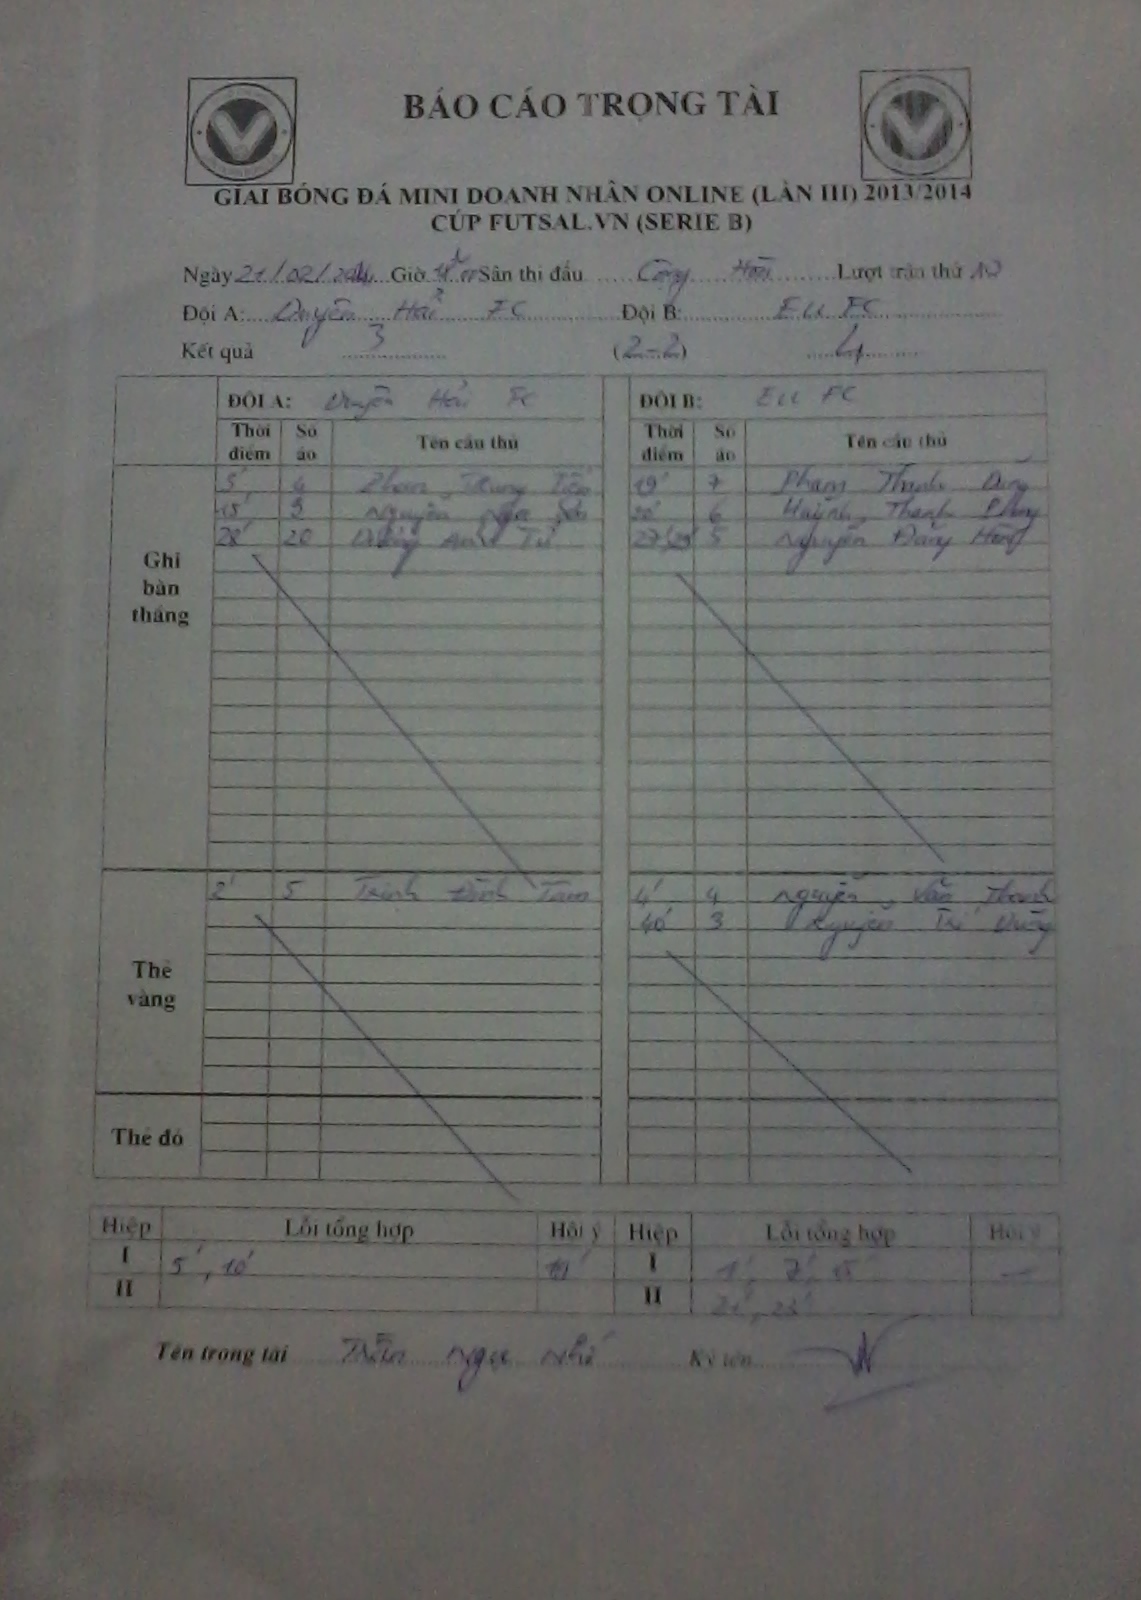 BÁO CÁO TRỌNG TÀI
GIẢI BÓNG ĐÁ MINI DOANH NHÂN ONLINE (LẦN III) 2013/2014
CÚP FUTSAL.VN (SERIE B)
Ngày 21/02/2014 Giờ Sân thi đấu Cộng Hòa Lượt trận thứ 10
Đội A: Duyên Hải FC Đội B: EU FC
Kết quả 3 (2-2) 4
ĐỘI A: Duyên Hải FC ĐỘI B: EU FC
Thời điểm Số áo Tên cầu thủ Thời điểm Số áo Tên cầu thủ
Ghi bàn thắng
5' 4 Trung Tiến 19' 7 Phạm Thanh
15' 9 Nguyễn 20' 6 Huỳnh Thanh
28' 20 Anh Tú 27' 5 Nguyễn Đăng
Thẻ vàng
2' 5 Trịnh Đình Tâm 4' 4 Nguyễn Văn Thanh
40' 3 Nguyễn Trí
Thẻ đỏ
Hiệp Lỗi tổng hợp Hội ý Hiệp Lỗi tổng hợp Hội ý
I 5', 10' 19' I 1', 7', 15' –
II II 21', 23'
Tên trọng tài Trần Ngọc Nhớ Ký tên